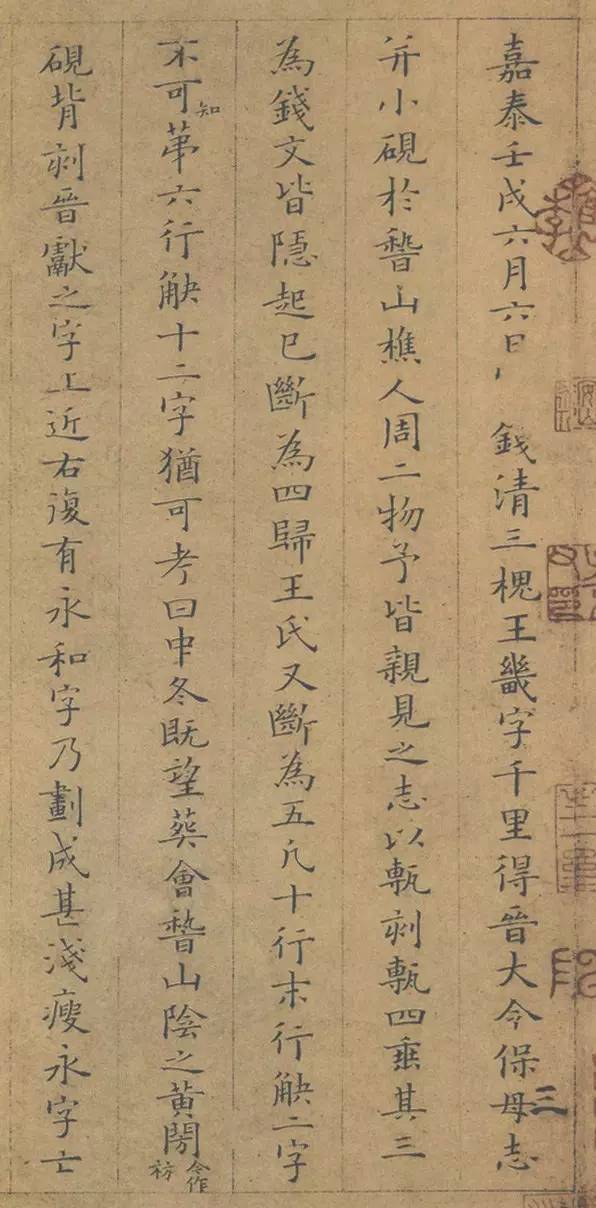 嘉泰壬戌六月六日錢清三槐王畿字千里得晉大令保母志
并小硯於稽山樵人周二物予皆親見之志以甎刻甎四垂其三
為錢文皆隱起已斷為四歸王氏又斷為五凡十行末行缺二字
不可知第六行缺十二字猶可考曰中冬既望葬會稽山陰之黃閍今作祊
硯背刻晉獻之字上近右復有永和字乃劃成甚淺瘦永字亡
三